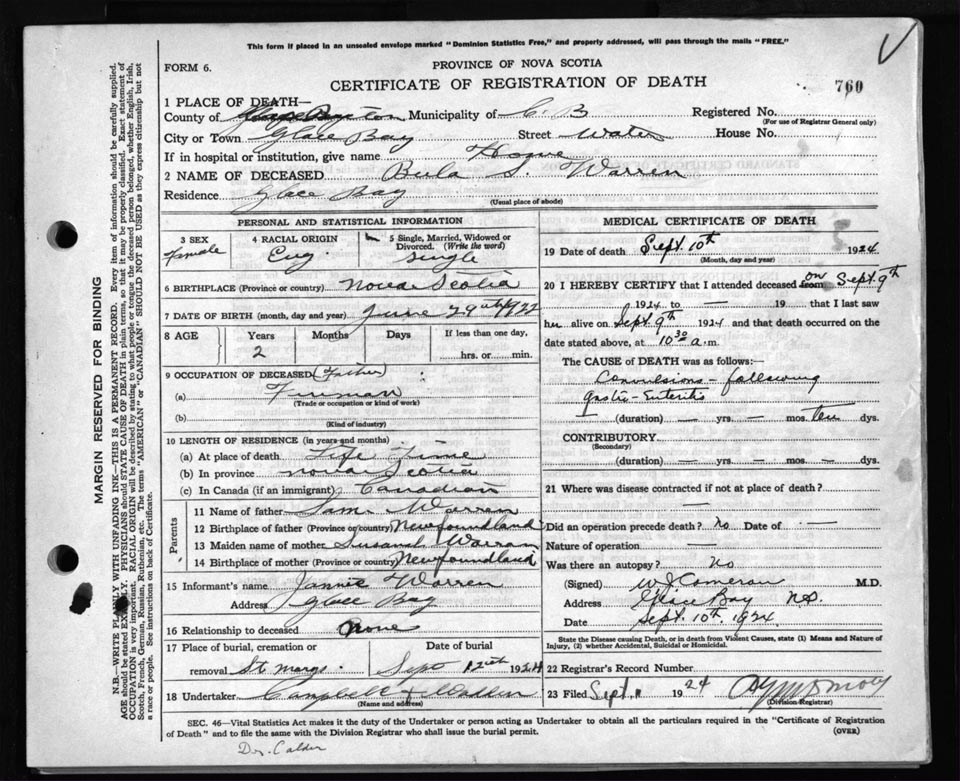 This form if placed in an unsealed envelope marked "Dominion Statistics Free," and properly addressed, will pass through the mails "FREE."
FORM 6.
PROVINCE OF NOVA SCOTIA
CERTIFICATE OF REGISTRATION OF DEATH
760
1 PLACE OF DEATH—
County of Cape Breton Municipality of C. B Registered No.
(For use of Registrar General only)
City or Town Glace Bay Street Water House No.
If in hospital or institution, give name Home
2 NAME OF DECEASED Bula S. Warren
Residence Glace Bay
(Usual place of abode)
PERSONAL AND STATISTICAL INFORMATION
3 SEX 4 RACIAL ORIGIN 5 Single, Married, Widowed or Divorced. (Write the word)
Female Eng single
6 BIRTHPLACE (Province or country) Nova Scotia
7 DATE OF BIRTH (month, day and year) June 29 1922
8 AGE Years Months Days If less than one day,
2 hrs. or min.
9 OCCUPATION OF DECEASED (Father)
(a) Fireman
(Trade or occupation or kind of work)
(b)
(Kind of industry)
10 LENGTH OF RESIDENCE (in years and months)
(a) At place of death Life Time
(b) In province Nova Scotia
(c) In Canada (if an immigrant) Canadian
Parents
11 Name of father Sam Warren
12 Birthplace of father (Province or country) Newfoundland
13 Maiden name of mother Susanah Warran
14 Birthplace of mother (Province or country) Newfoundland
15 Informant's name Jannie Warren
Address Glace Bay
16 Relationship to deceased None
17 Place of burial, cremation or removal Date of burial
St Marys. Sept 12th 1924
18 Undertaker Campbell & Wadden
(Name and address)
MEDICAL CERTIFICATE OF DEATH
19 Date of death Sept. 10th 1924
(Month, day and year)
20 I HEREBY CERTIFY that I attended deceased from on Sept. 9th
1924 to — 19 that I last saw
her alive on Sept. 9th 1924 and that death occurred on
date stated above, at 10 30 a.m.
The CAUSE of DEATH was as follows:—
Convulsions following
gastro-Enteritis
(duration) — yrs. — mos. ten dys.
CONTRIBUTORY
(Secondary)
(duration) — yrs. — mos. — dys.
21 Where was disease contracted if not at place of death?
—
Did an operation precede death? No Date of —
Nature of operation —
Was there an autopsy? No
(Signed) W J Cameron M.D.
Address Glace Bay N.S.
Date Sept. 10th. 1924.
State the Disease causing Death, or in death from Violent Causes, state (1) Means and Nature of Injury, (2) whether Accidental, Suicidal or Homicidal.
22 Registrar's Record Number
23 Filed Sept. 11 1924
(Division Registrar)
SEC. 46—Vital Statistics Act makes it the duty of the Undertaker or person acting as Undertaker to obtain all the particulars required in the "Certificate of Registration
of Death" and to file the same with the Division Registrar who shall issue the burial permit.
(OVER)
Dr. Calder
MARGIN RESERVED FOR BINDING
N.B.—WRITE PLAINLY WITH UNFADING INK—THIS IS A PERMANENT RECORD. Every item of information should be carefully supplied.
AGE should be stated EXACTLY. PHYSICIANS should STATE CAUSE OF DEATH in plain terms, so that it may be properly classified. Exact statement of
OCCUPATION is very important. RACIAL ORIGIN will be described by stating to what people or tongue the deceased person belonged, whether English, Irish,
Scotch, French, German, Russian, Ruthenian, etc. The terms "AMERICAN" or "CANADIAN" SHOULD NOT BE USED as they express citizenship but not
a race or people. See instructions on back of Certificate.